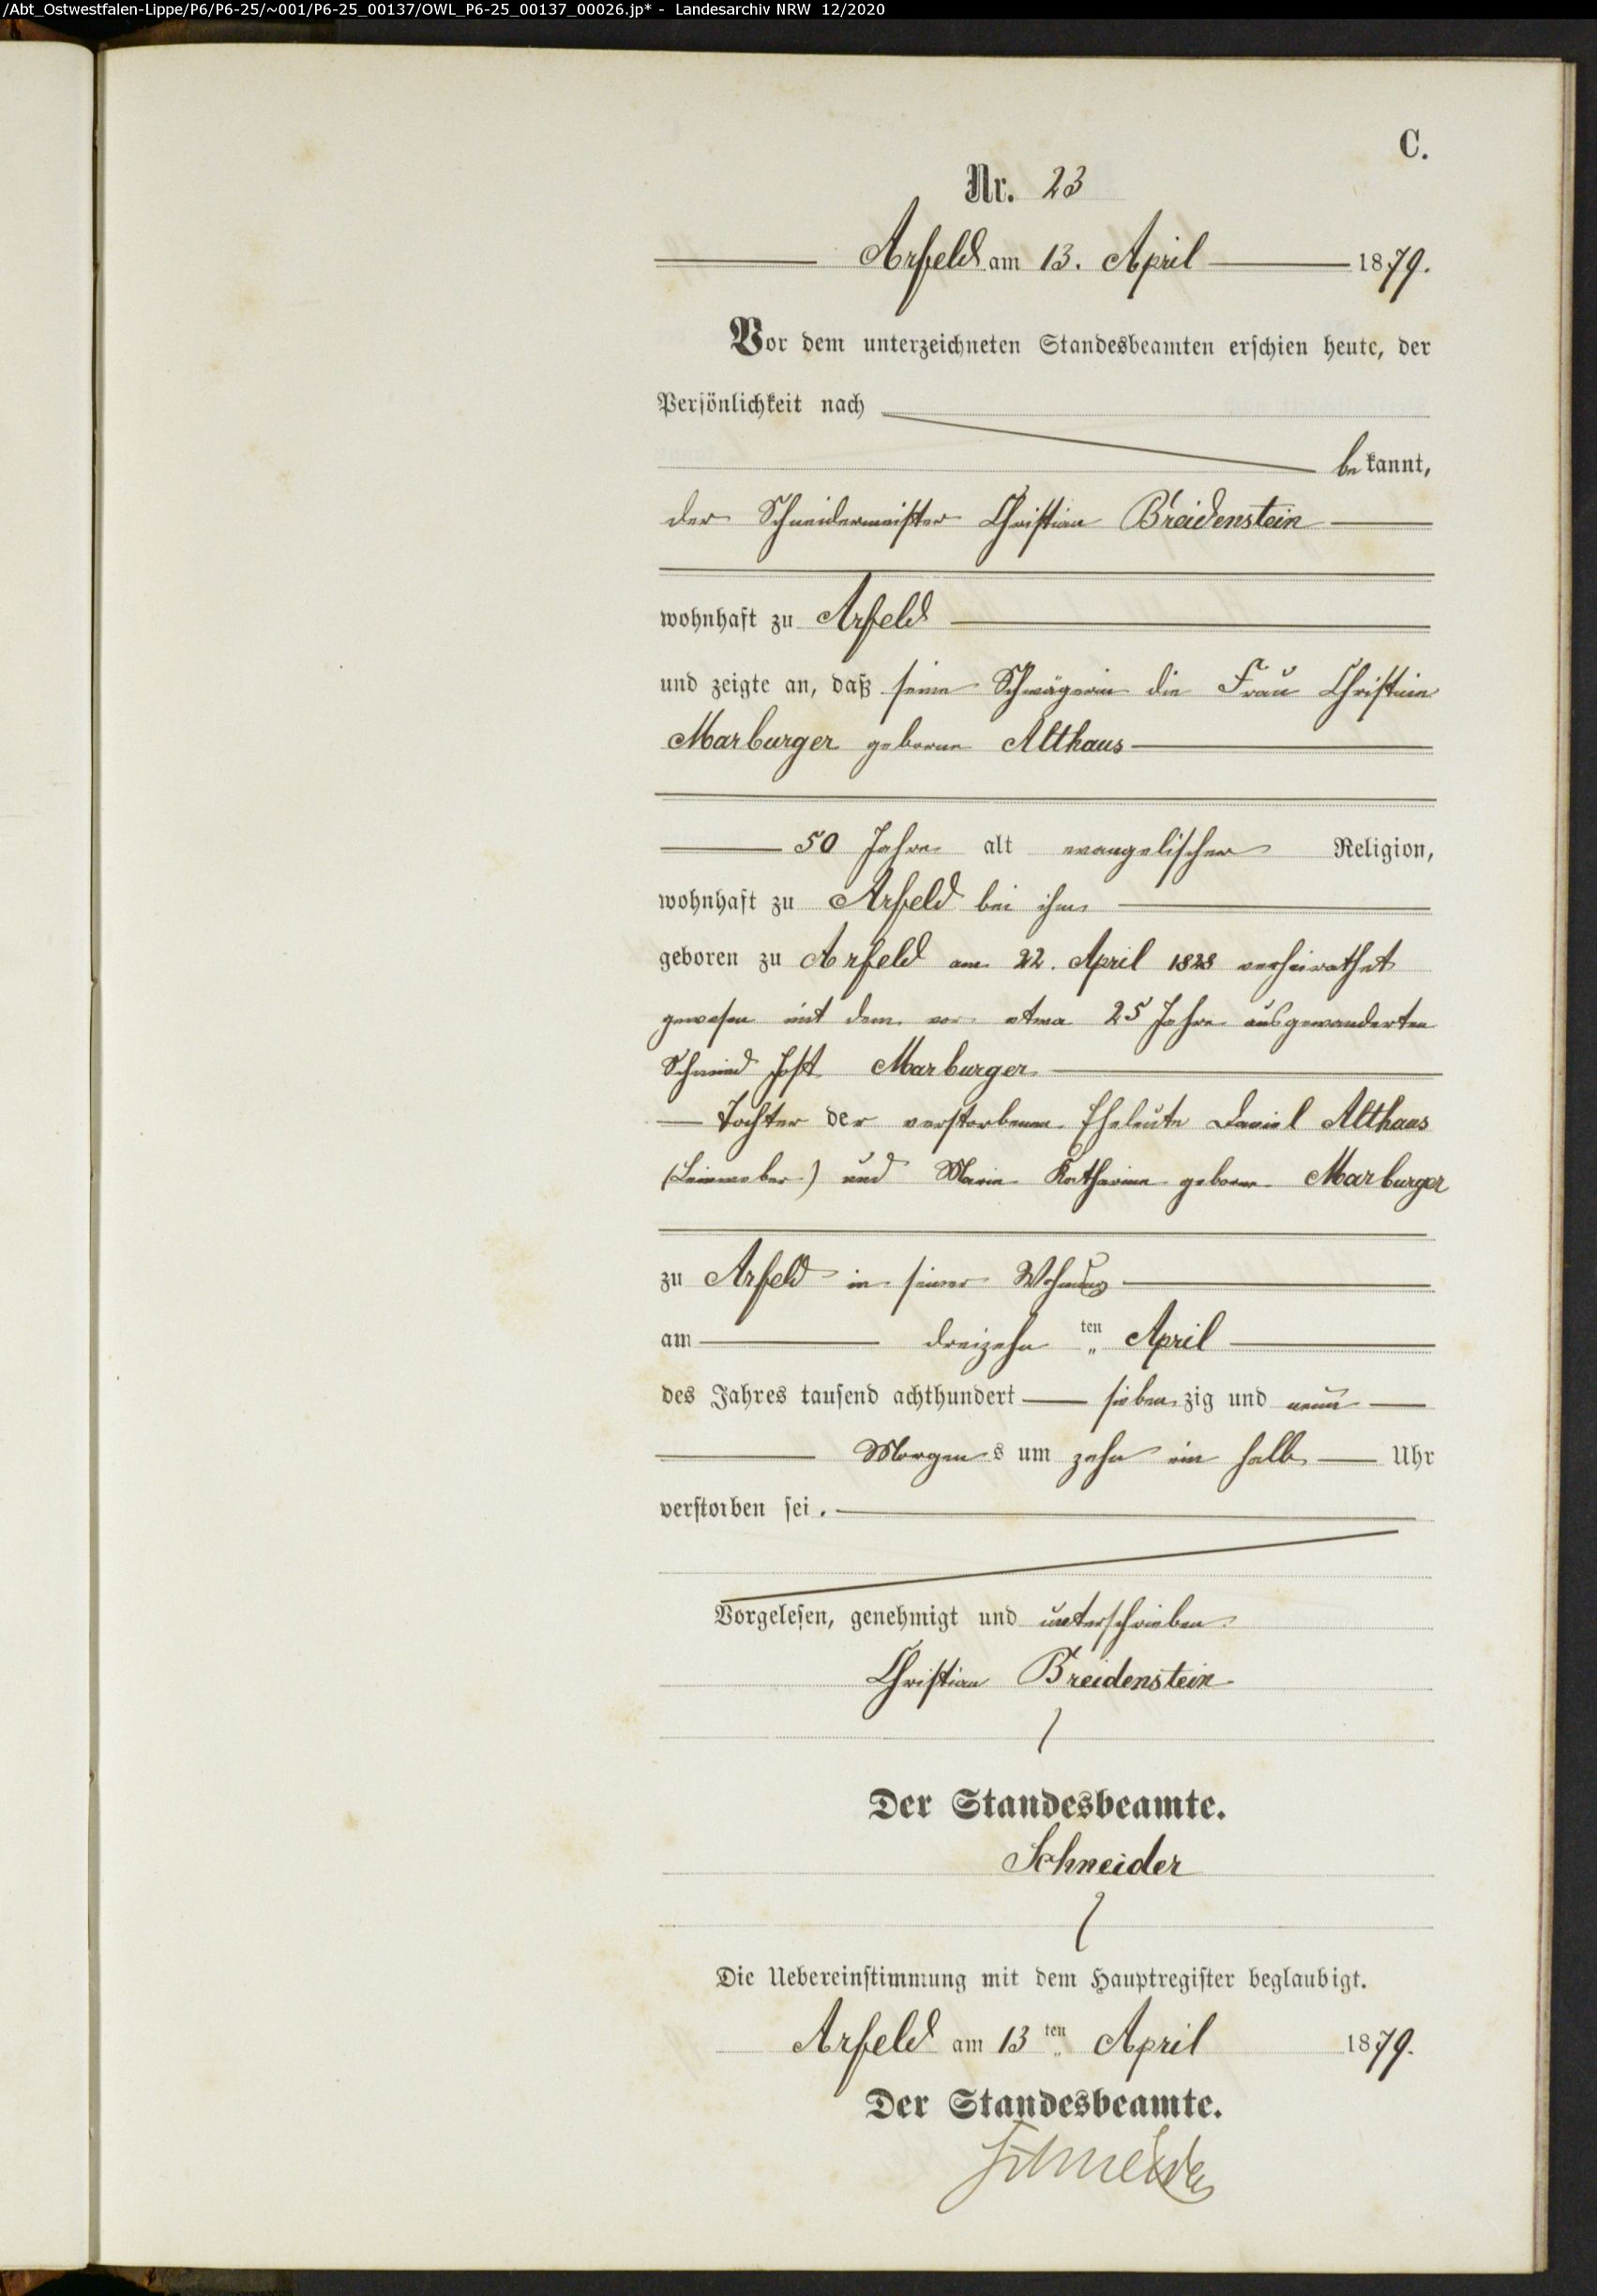 /Abt_Ostwestfalen-Lippe/P6/P6-25/~001/P6-25_00137/OWL_P6-25_00137_00026.jp* - Landesarchiv NRW 12/2020
C.
Nr. 23
Arfeld am 13. April 1879.
Vor dem unterzeichneten Standesbeamten erschien heute, der
Persönlichkeit nach
bekannt,
der Schneidermeister Christian Breidenstein
wohnhaft zu Arfeld
und zeigte an, daß seine Schwägerin die Frau Christine
Marburger geborne Althaus
50 Jahre alt evangelischer Religion,
wohnhaft zu Arfeld bei ihm
geboren zu Arfeld am 22. April 1828 verheirathet
gewesen mit dem vor etwa 25 Jahre ausgewanderten
Schmied Jost Marburger
Tochter der verstorbenen Eheleute Daniel Althaus
(Leinweber) und Marie Katharine geborne Marburger
zu Arfeld in seiner Wohnung
am dreizehnten April
des Jahres tausend achthundert siebenzig und neun
Morgens um zehn ein halb Uhr
verstorben sei.
Vorgelesen, genehmigt und unterschrieben
Christian Breidenstein
Der Standesbeamte.
Schneider
Die Uebereinstimmung mit dem Hauptregister beglaubigt.
Arfeld am 13ten April 1879.
Der Standesbeamte.
Schneider